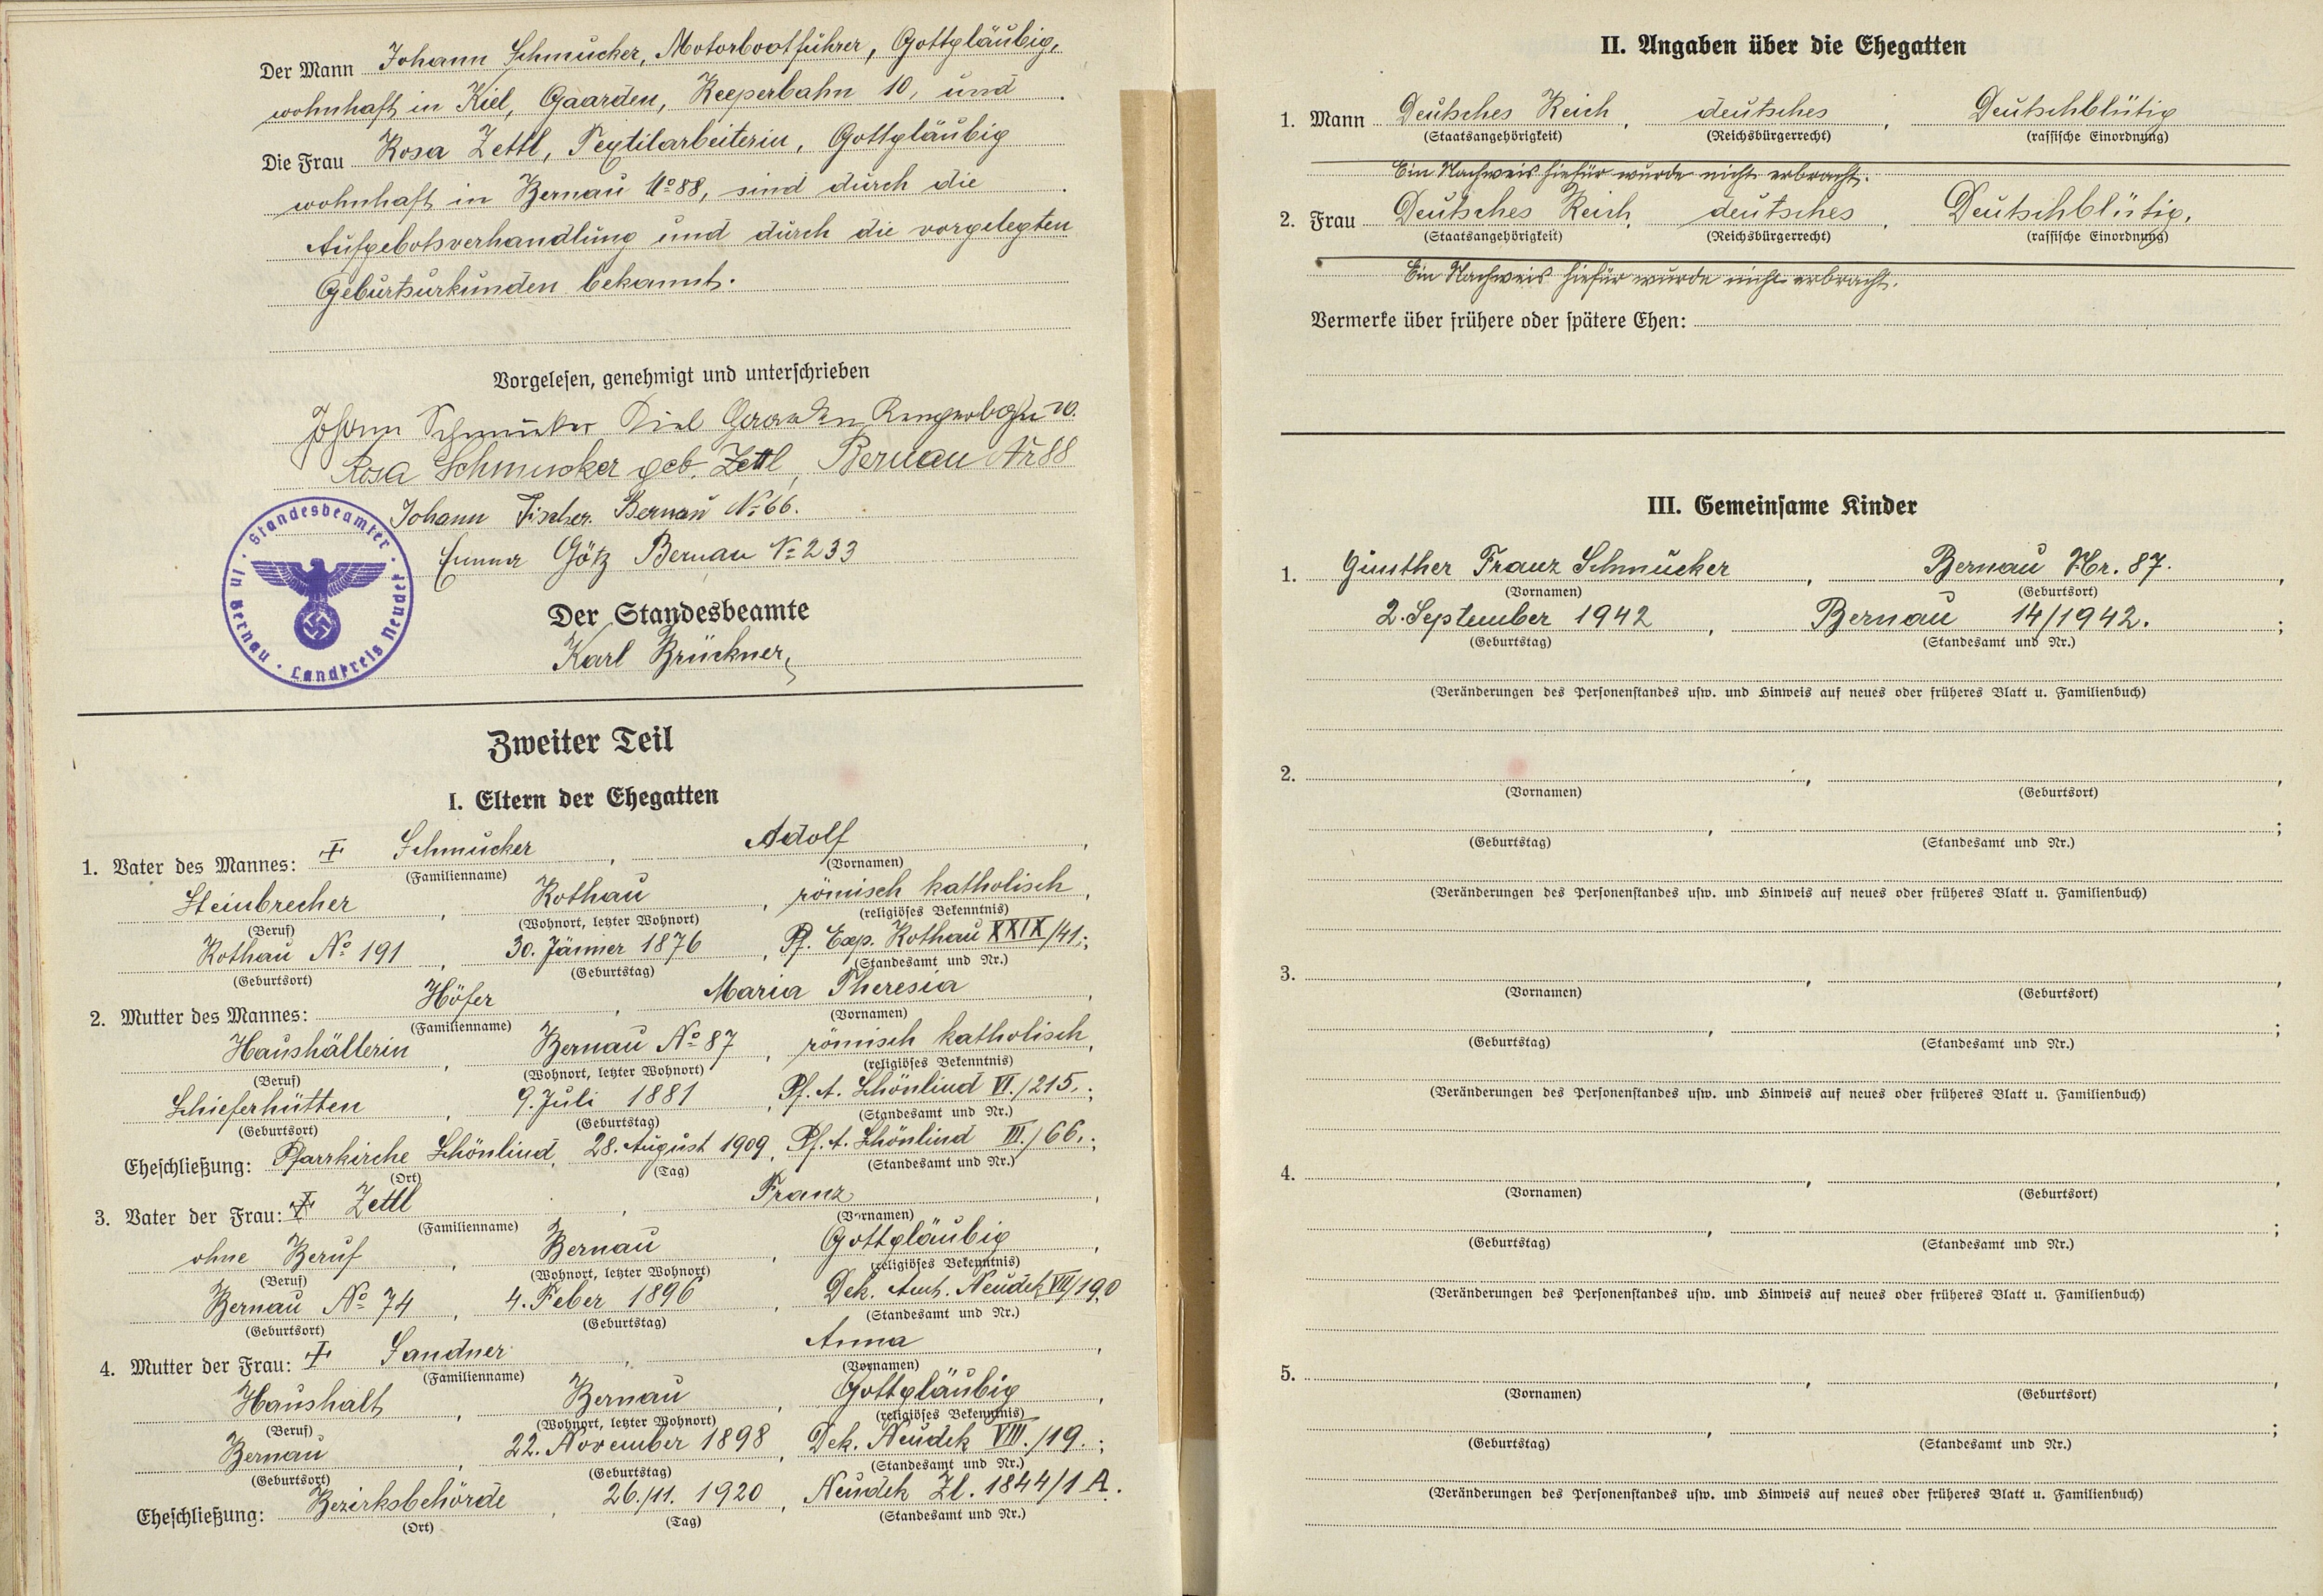 Der Mann Johann Schmucker, Motorbootführer, Gottgläubig,
wohnhaft in Kiel, Gaarden, Reeperbahn 10, und
Die Frau Rosa Zettl, Textilarbeiterin, Gottgläubig
wohnhaft in Bernau No 88, sind durch die
Aufgebotsverhandlung und durch die vorgelegten
Geburtsurkunden bekannt.
Vorgelesen, genehmigt und unterschrieben
Johann Schmucker Kiel Gaarden 10.
Rosa Schmucker geb. Zettl, Bernau Nr 88
Johann Fischer. Bernau No 66.
Götz Bernau No 233
Standesbeamter in Bernau · Landkreis Neudek
Der Standesbeamte
Karl Brückner
Zweiter Teil
I. Eltern der Ehegatten
1. Vater des Mannes: Schmucker, Adolf,
(Familienname) (Vornamen)
Steinbrecher, Rothau, römisch katholisch,
(Beruf) (Wohnort, letzter Wohnort) (religiöses Bekenntnis)
Rothau No 191, 30. Jänner 1876, Pf. Exp. Rothau XXIX/41.;
(Geburtsort) (Geburtstag) (Standesamt und Nr.)
2. Mutter des Mannes: Höfer, Maria Theresia,
(Familienname) (Vornamen)
Haushälterin, Bernau No 87, römisch katholisch,
(Beruf) (Wohnort, letzter Wohnort) (religiöses Bekenntnis)
Schieferhütten, 9. Juli 1881, Pf. A. Schönlind VI./215.;
(Geburtsort) (Geburtstag) (Standesamt und Nr.)
Eheschließung: Pfarrkirche Schönlind, 28. August 1909, Pf. A. Schönlind III./66.;
(Ort) (Tag) (Standesamt und Nr.)
3. Vater der Frau: Zettl, Franz,
(Familienname) (Vornamen)
ohne Beruf, Bernau, Gottgläubig,
(Beruf) (Wohnort, letzter Wohnort) (religiöses Bekenntnis)
Bernau No 74, 4. Feber 1896, Dek. Amt. Neudek VII/190
(Geburtsort) (Geburtstag) (Standesamt und Nr.)
4. Mutter der Frau: Sandner, Anna,
(Familienname) (Vornamen)
Haushalt, Bernau, Gottgläubig,
(Beruf) (Wohnort, letzter Wohnort) (religiöses Bekenntnis)
Bernau, 22. November 1898, Dek. Neudek VIII./19.;
(Geburtsort) (Geburtstag) (Standesamt und Nr.)
Eheschließung: Bezirksbehörde, 26./11. 1920, Neudek Zl. 1844/1 A.
(Ort) (Tag) (Standesamt und Nr.)
II. Angaben über die Ehegatten
1. Mann Deutsches Reich, deutsches, Deutschblütig
(Staatsangehörigkeit) (Reichsbürgerrecht) (rassische Einordnung)
Ein Nachweis hiefür wurde nicht erbracht.
2. Frau Deutsches Reich, deutsches, Deutschblütig,
(Staatsangehörigkeit) (Reichsbürgerrecht) (rassische Einordnung)
Ein Nachweis hiefür wurde nicht erbracht.
Vermerke über frühere oder spätere Ehen:
III. Gemeinsame Kinder
1. Günther Franz Schmucker, Bernau Nr. 87.,
(Vornamen) (Geburtsort)
2. September 1942, Bernau 14/1942.;
(Geburtstag) (Standesamt und Nr.)
(Veränderungen des Personenstandes usw. und Hinweis auf neues oder früheres Blatt u. Familienbuch)
2. , ,
(Vornamen) (Geburtsort)
, ;
(Geburtstag) (Standesamt und Nr.)
(Veränderungen des Personenstandes usw. und Hinweis auf neues oder früheres Blatt u. Familienbuch)
3. , ,
(Vornamen) (Geburtsort)
, ;
(Geburtstag) (Standesamt und Nr.)
(Veränderungen des Personenstandes usw. und Hinweis auf neues oder früheres Blatt u. Familienbuch)
4. , ,
(Vornamen) (Geburtsort)
, ;
(Geburtstag) (Standesamt und Nr.)
(Veränderungen des Personenstandes usw. und Hinweis auf neues oder früheres Blatt u. Familienbuch)
5. , ,
(Vornamen) (Geburtsort)
, ;
(Geburtstag) (Standesamt und Nr.)
(Veränderungen des Personenstandes usw. und Hinweis auf neues oder früheres Blatt u. Familienbuch)